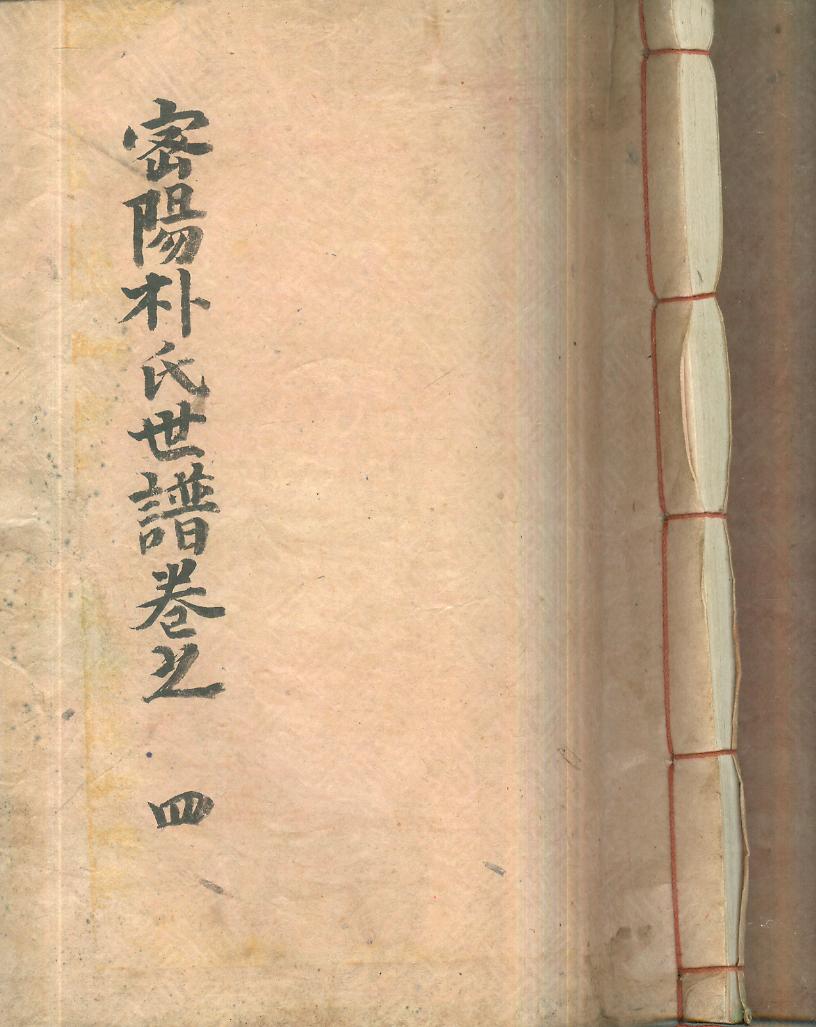 密陽朴氏世譜卷之 四